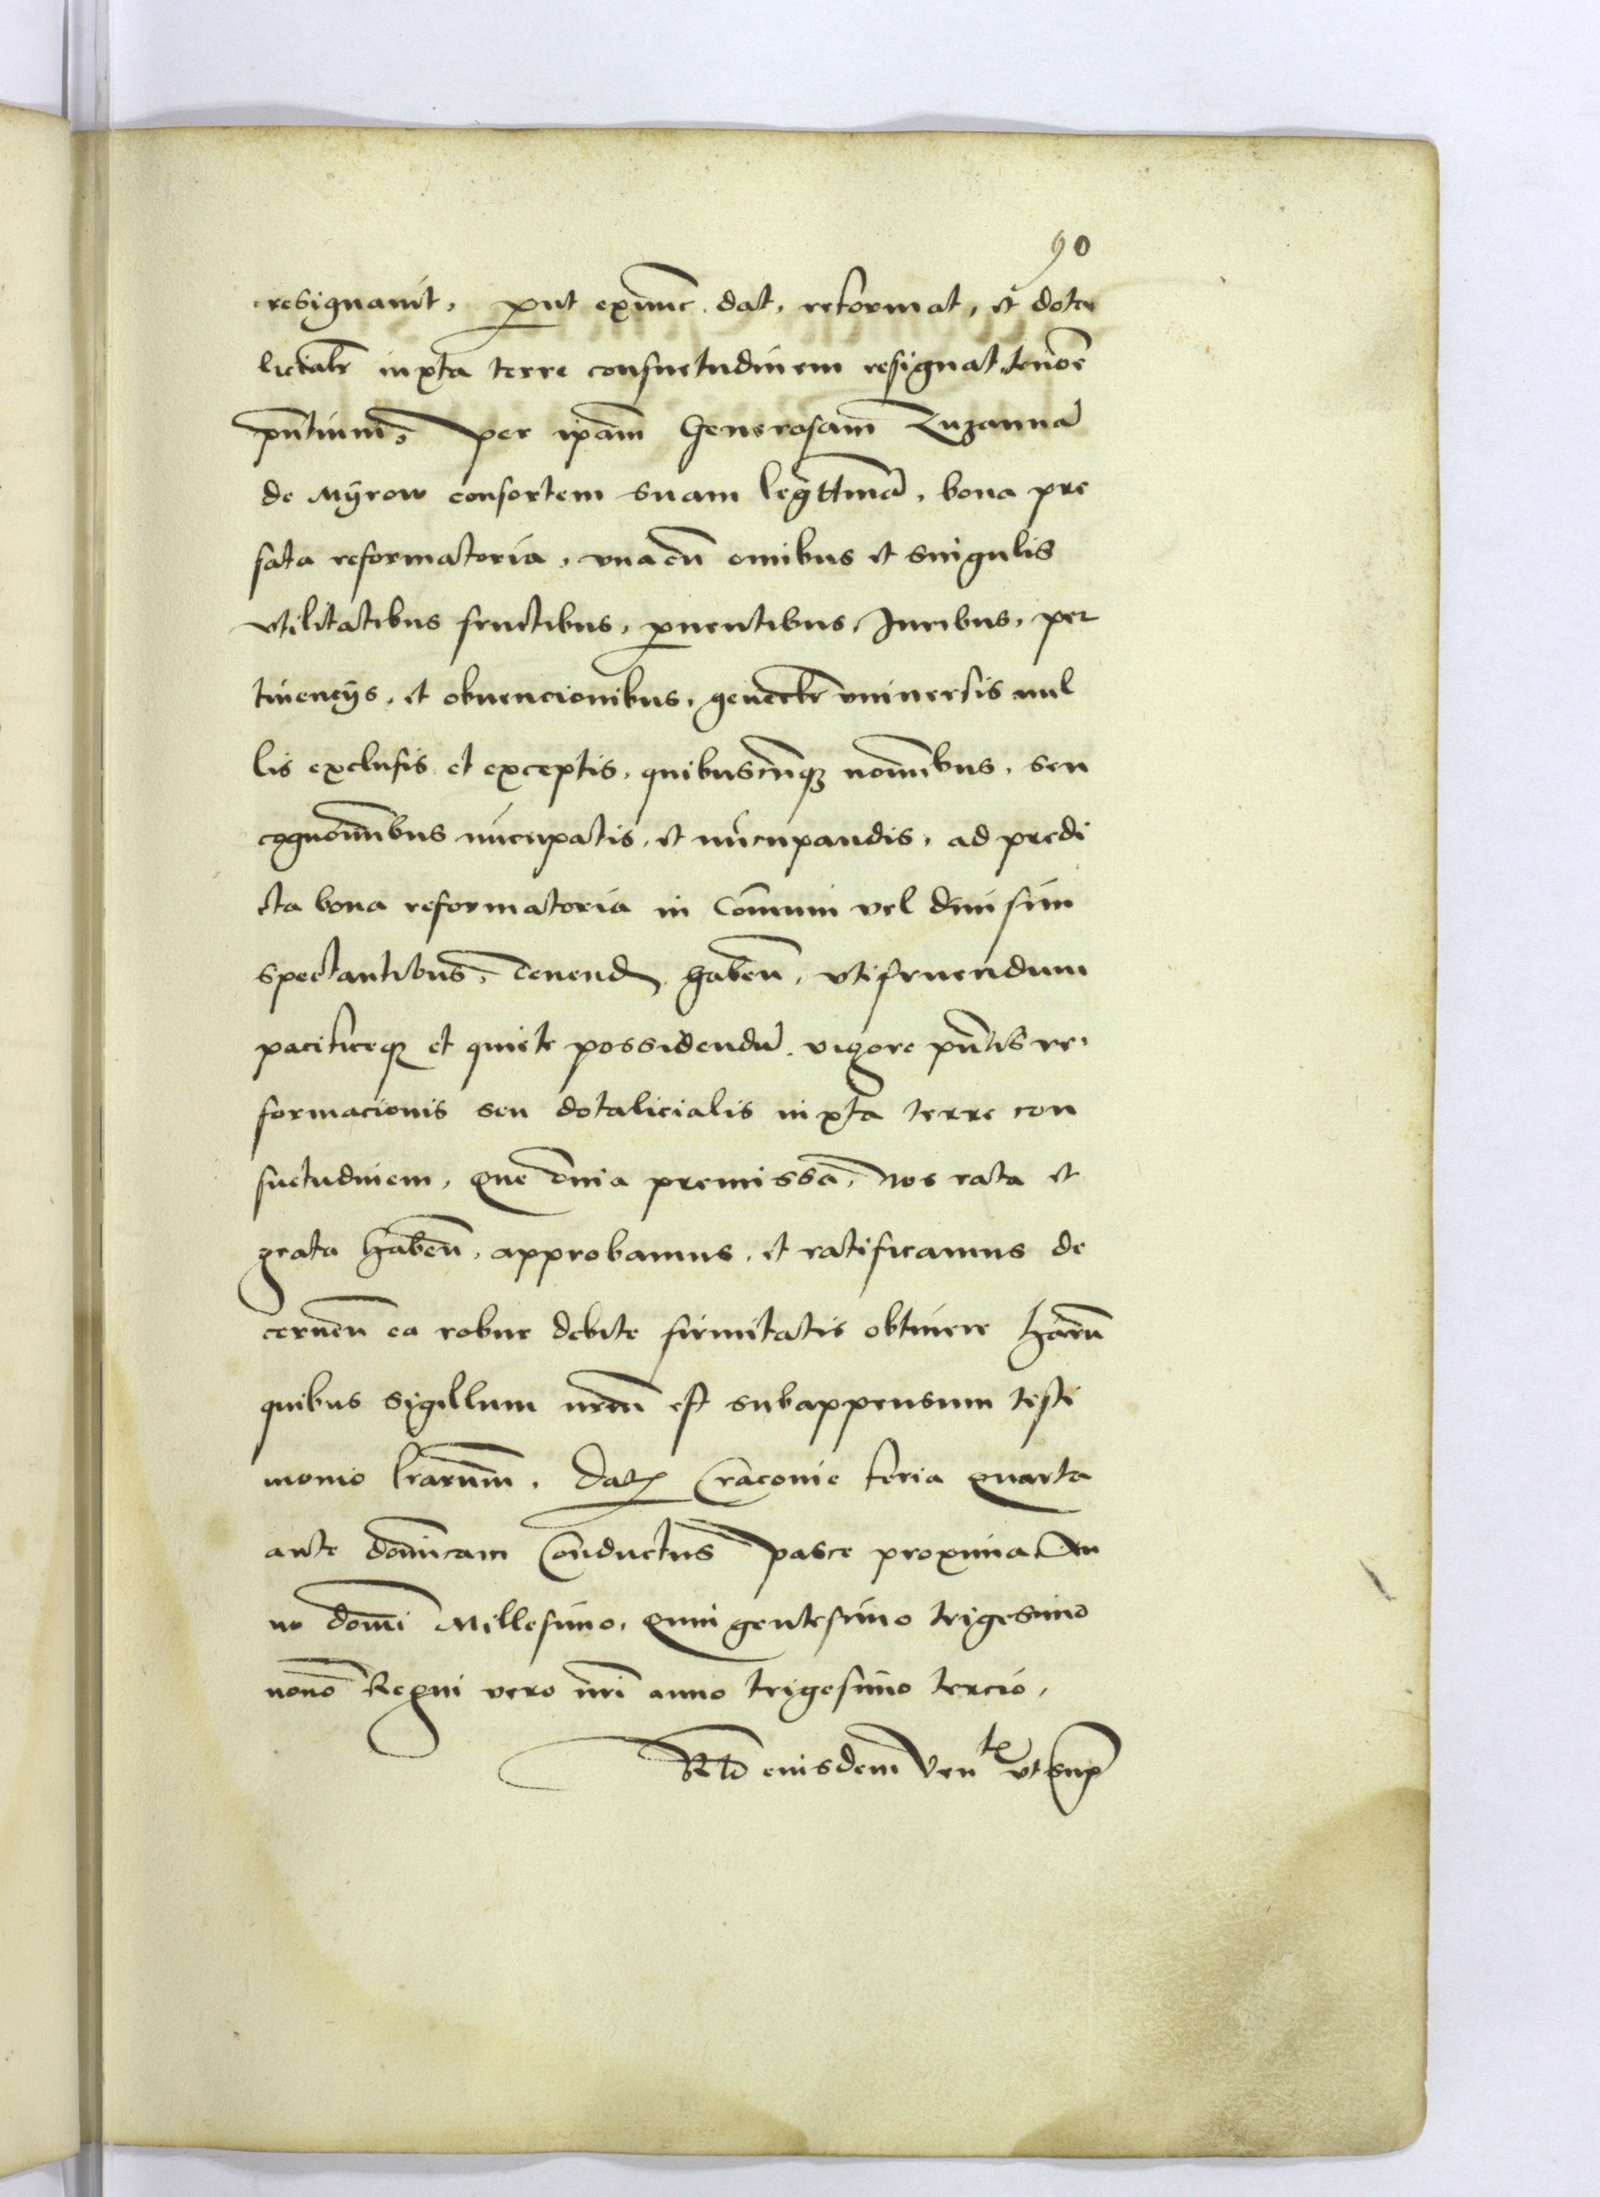 90
resignauit, prout exnunc dat, reformat, et dota
licialr iuxta terre consuetudinem resignat tenore
pñtium, per ipam Generosam Zuzannã
de Myrow consortem suam legttimã, bona pre
fata reformatoria, vnacũ omibus et singulis
vtilitatibus fructibus, prouentibus, Iuribus, per
tinencijs, et obuencionibus, generalr vniuersis nul
lis exclusis et exceptis, quibuscunq nominibus, seu
cognominibus nũcupatis, et nũcupandis, ad predi
cta bona reformatoria in Comuni vel diuisim
spectantibus, Tenend, habeñ, vtifruendum
pacificeq et quiete possidendũ, vigore pñtis re
formacionis seu dotalicialis iuxta terre con
suetudinem, Que omnia premissa, Nos rata et
grata habeñ, approbamus, et ratificamus de
cerneñ ea robur debite firmitatis obtinere Harũ
quibus sigillum nrum est subappensum testi
monio lrarum, Dat Cracouie feria quarta
ante dominicam Conductus Pasce proxima An
no domi Millesimo, Quingentesimo trigesimo
nono Regni vero nri anno trigesimo tercio,
Rlo eiusdem Ven te vt supr